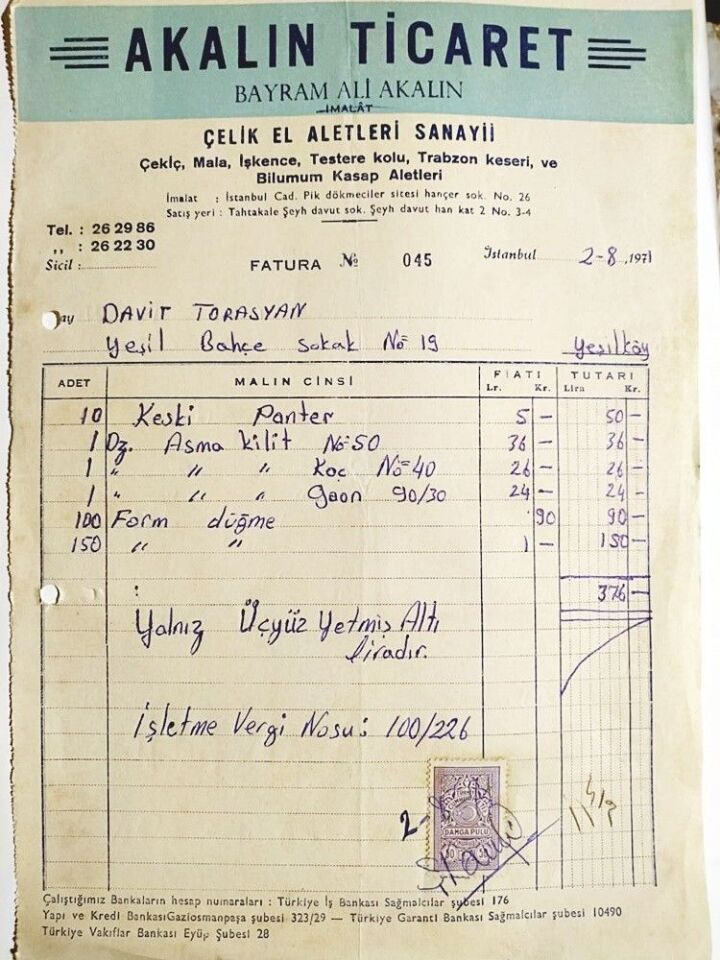 AKALIN TİCARET
BAYRAM ALİ AKALIN
İMALÂT
ÇELİK EL ALETLERİ SANAYİİ
Çekiç, Mala, İşkence, Testere kolu, Trabzon keseri, ve
Bilumum Kasap Aletleri
İmalat : İstanbul Cad. Pik dökmeciler sitesi hançer sok. No. 26
Satış yeri : Tahtakale Şeyh davut sok. Şeyh davut han kat 2 No. 3-4
Tel. : 26 29 86
,, : 26 22 30
Sicil :
FATURA № 045 İstanbul 2-8, 1971
ay DAVİT TORASYAN
Yeşil Bahçe sokak No 19 Yeşilköy
ADET MALIN CİNSİ FİATI Lr. Kr. TUTARI Lira Kr.
10 Keski Panter 5 - 50 -
1 Dz. Asma kilit No=50 36 - 36 -
1 " " " Koç No=40 26 - 26 -
1 " " " 90/30 24 - 24 -
100 Form düğme 90 90 -
150 " " 1 - 150 -
376 -
Yalnız Üçyüz Yetmiş Altı
liradır.
İşletme Vergi Nosu: 100/226
DAMGA PULU
Çalıştığımız Bankaların hesap numaraları : Türkiye İş Bankası Sağmalcılar şubesi 176
Yapı ve Kredi BankasıGaziosmanpaşa şubesi 323/29 — Türkiye Garanti Bankası Sağmalcılar şubesi 10490
Türkiye Vakıflar Bankası Eyüp Şubesi 28